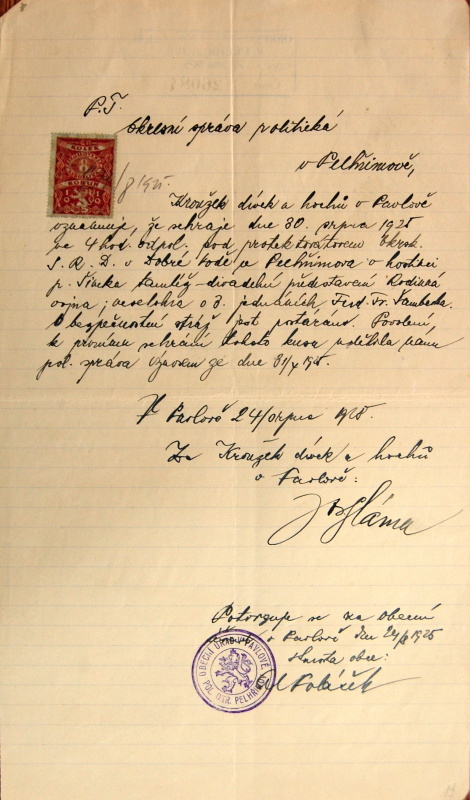 P.T.
Okresní správa politická
v Pelhřimově,
KOLEK
1 KORUNA 1
/8 1925.
Kroužek dívek a hochů v Pavlově
oznamuje, že sehraje dne 30. srpna 1925
ve 4 hod. odpol. pod protektorátem Okrsk.
S. R. D. v Dobré Vodě u Pelhřimova v hostinci
p. Šimka tamtéž divadelní představení Rodinná
vojna; veselohra o 3. jednáních Ferd. Fr. Šamberka.
O bezpečnostní stráž jest postaráno. Povolení
k prvnímu sehrání tohoto kusu udělila nám
pol. správa výnosem ze dne 1925.
V Pavlově 24/srpna 1925.
Za Kroužek dívek a hochů
v Pavlově:
Jos Sláma
Potvrzuje se za obecní
v Pavlově dne 24/8 1925
starosta obce:
OBECNÍ ÚŘAD V PAVLOVĚ
POL. OKR. PELHŘIMOV